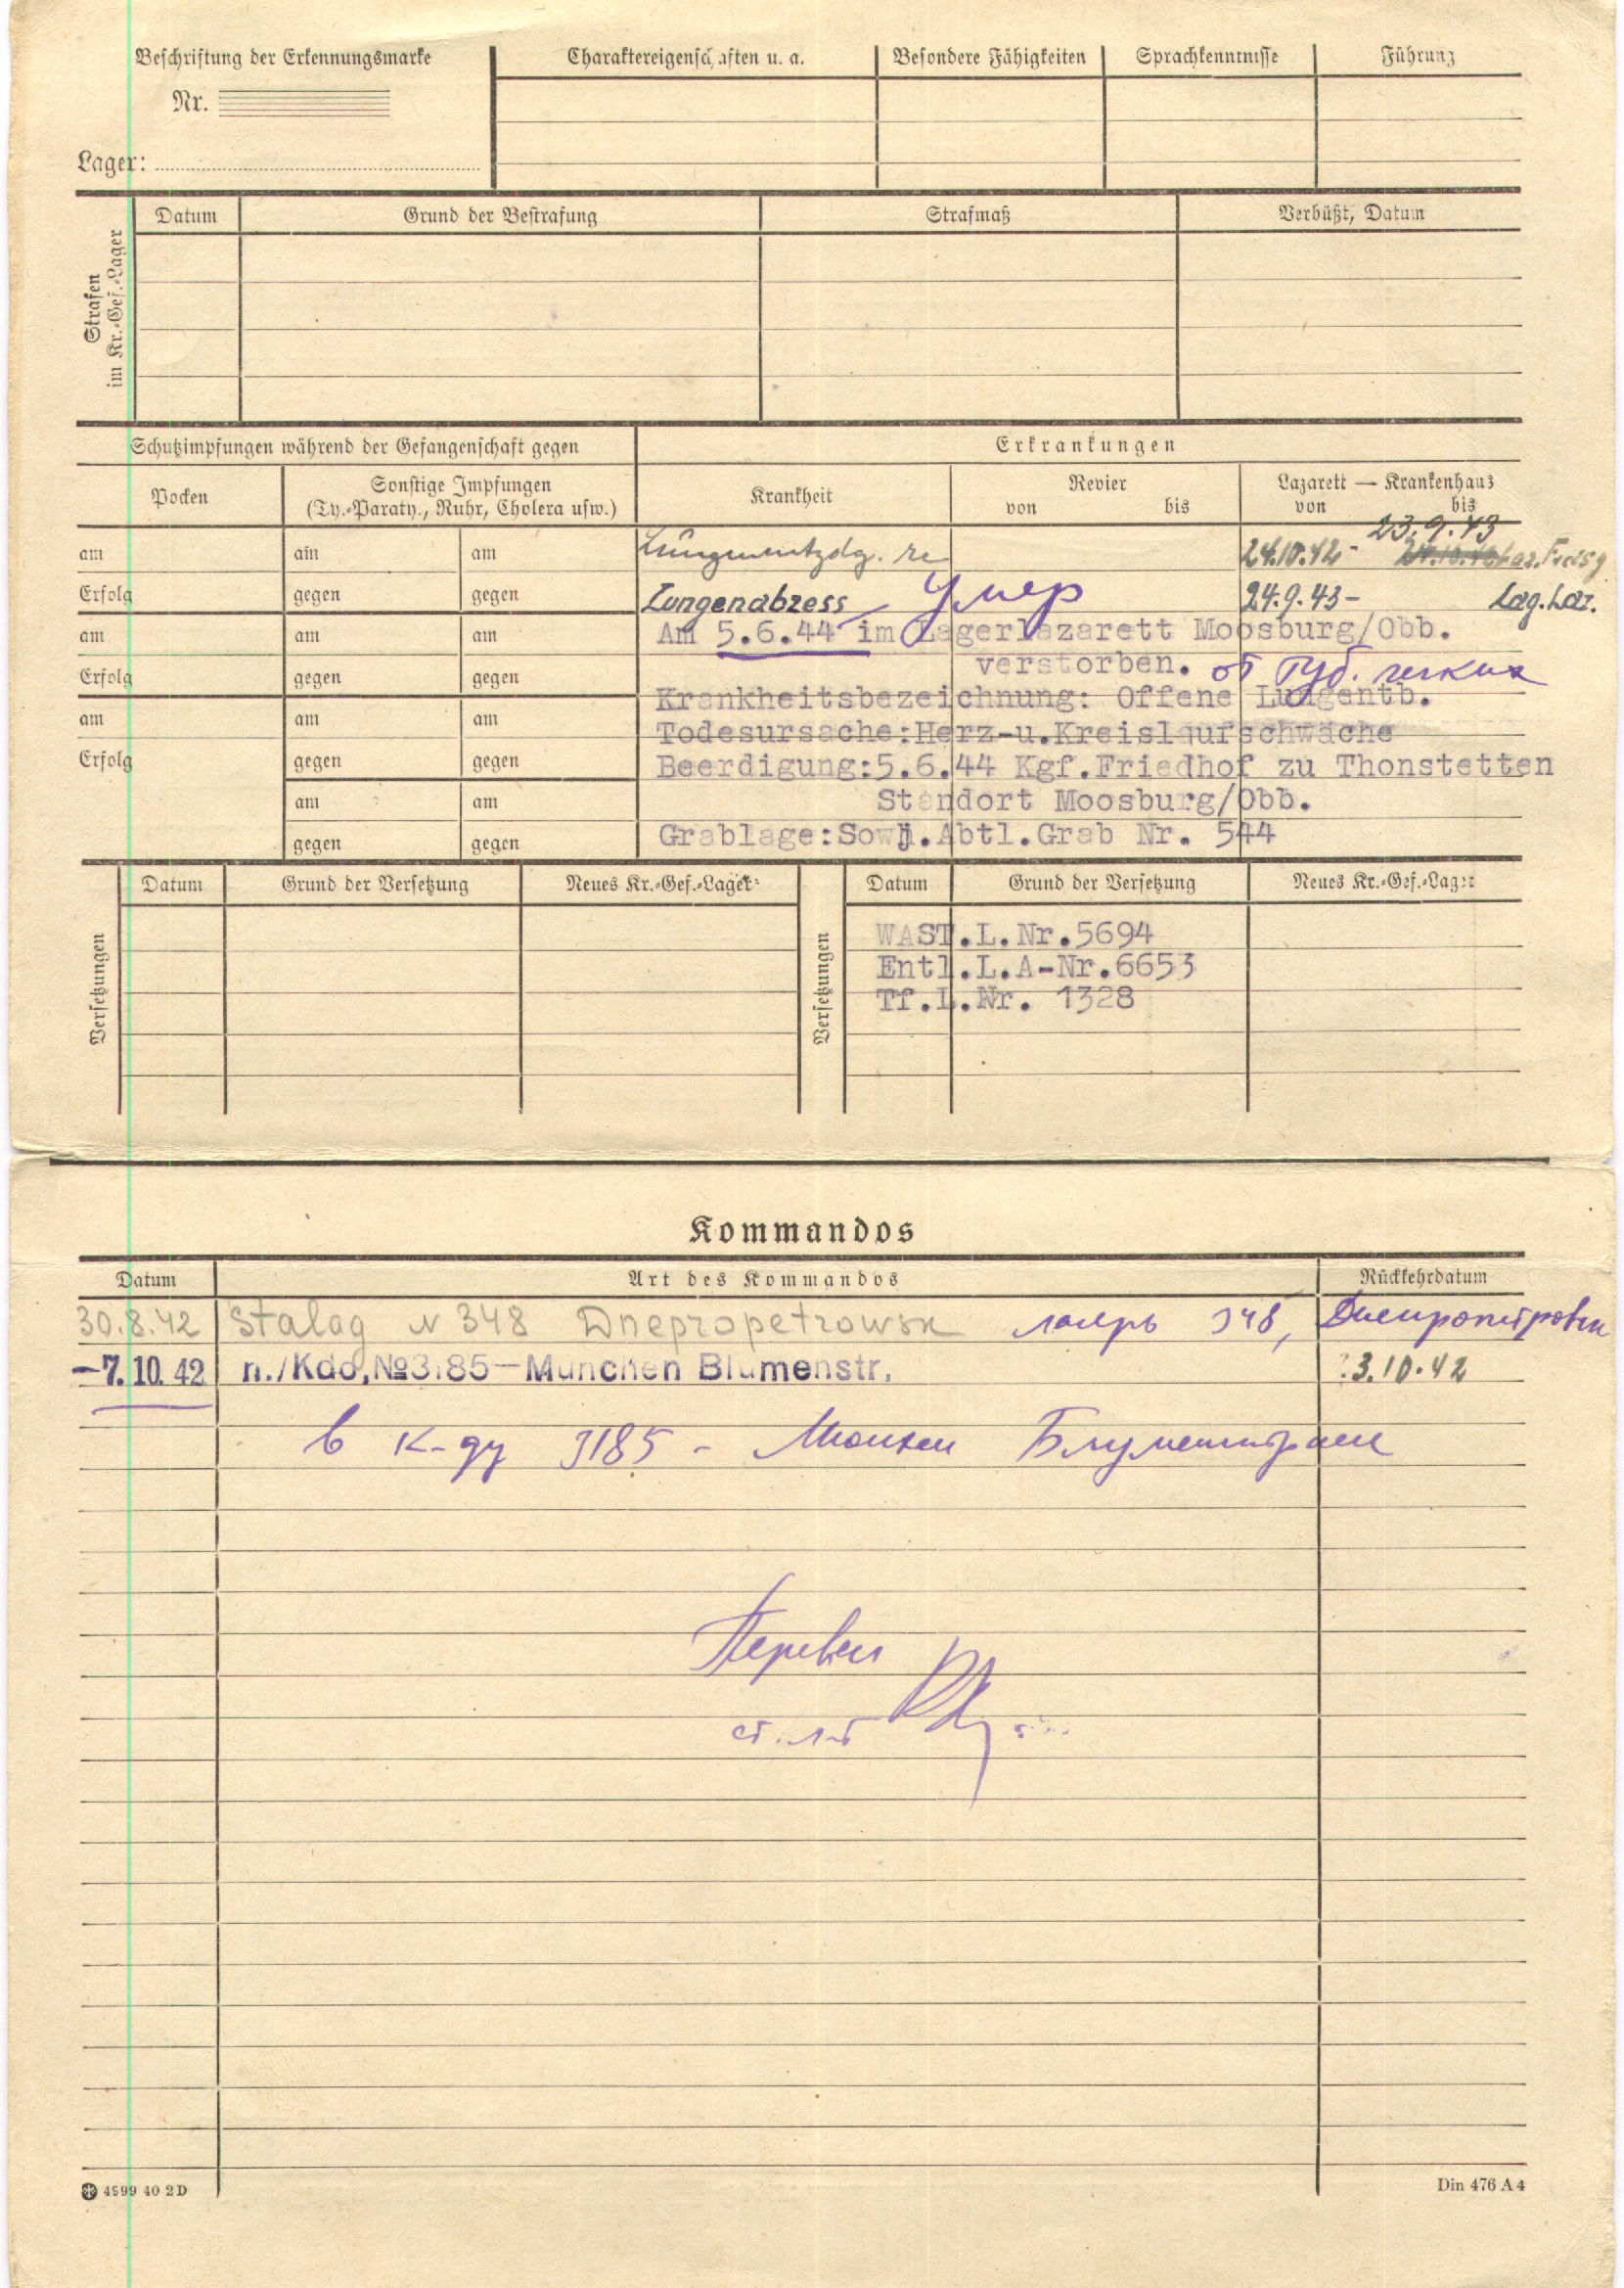 Beschriftung der Erkennungsmarke
Nr.
Lager:
Charaktereigenschaften u. a.
Besondere Fähigkeiten
Sprachkenntnisse
Führung
Strafen im Kr.-Gef.-Lager
Datum
Grund der Bestrafung
Strafmaß
Verbüßt, Datum
Schutzimpfungen während der Gefangenschaft gegen
Erkrankungen
Pocken
Sonstige Impfungen
(Ty.-Paraty., Ruhr, Cholera usw.)
Krankheit
Revier
von bis
Lazarett — Krankenhaus
von bis
23.9.43
am am am
Lungenentzdg. re
24.10.42 -
Erfolg gegen gegen
Lungenabzess – Умер
24.9.43 – Lag. Laz.
am am am
Am 5.6.44 im Lagerlazarett Moosburg/Obb.
verstorben. от туб. легких
Erfolg gegen gegen
Krankheitsbezeichnung: Offene Lungentb.
am am am
Todesursache:Herz-u.Kreislaufschwäche
Erfolg gegen gegen
Beerdigung:5.6.44 Kgf.Friedhof zu Thonstetten
am am
Standort Moosburg/Obb.
gegen gegen
Grablage:Sowj.Abtl.Grab Nr. 544
Versetzungen
Datum
Grund der Versetzung
Neues Kr.-Gef.-Lager
Versetzungen
Datum
Grund der Versetzung
Neues Kr.-Gef.-Lager
WAST.L.Nr.5694
Entl.L.A-Nr.6653
Tf.L.Nr. 1328
Kommandos
Datum
Art des Kommandos
Rückkehrdatum
30.8.42 Stalag N 348 Dnepropetrowsk лагерь 348, Днепропетровск
-7.10.42 n./Kdo.№3185—München Blumenstr. 3.10.42
в к-ду 3185 - Мюнхен Блуменштрассе
Перевел
ст. л-т
4999 40 2D
Din 476 A 4